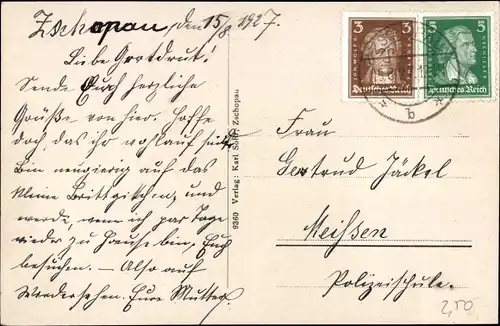 Zschopau, den 15/8 1927.
Liebe Gertdrut!
Sende Euch herzliche
Grüße von hier. Hoffe
doch, das ihr wohlauf seid.
Bin neugierig auf das
kleine Brittgitchen, und
werde, wenn ich par Tage
wieder zu Hause bin, Euch
besuchen. – Also auf
Wiedersehen. Eure Mutter.
9360 Verlag: Karl Zschopau
3 3
Deutsches Reich
5 5
Deutsches Reich
* b *
Frau
Gertrud Jäckel
Meissen
Polizeischule.
2,50